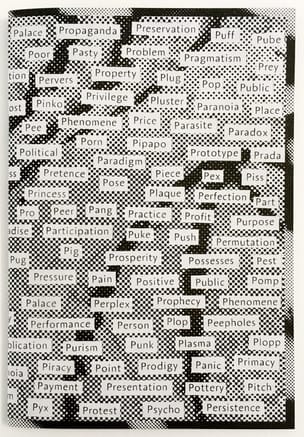 Palace Propaganda Preservation Puff Pube
Poor Pasty Problem Pragmatism Prey
tion Pervers Property Plug Pop Public
ost Pinko Privilege Pluster Paranoia Place
Pee Phenomene Price Parasite Paradox
Political Porn Pipapo Prototype Prada
Paradigm
ss Pretence Pose Piece Pex Piss
Princess Plaque Perfection Part
Pro Peer Pang Practice Profit Purpose
dise Participation Puke Push Permutation
Pug Pig Prosperity Possesses Pest
Pressure Pain Positive Public Pomp
Palace Perplex Prophecy Phenomene
Performance Person Plop Peepholes
blication Purism Punk Plasma Plopp
noia Piracy Point Prodigy Panic Primacy
Payment Presentation Pottery Pitch
m Pyx Protest Psycho Persistence